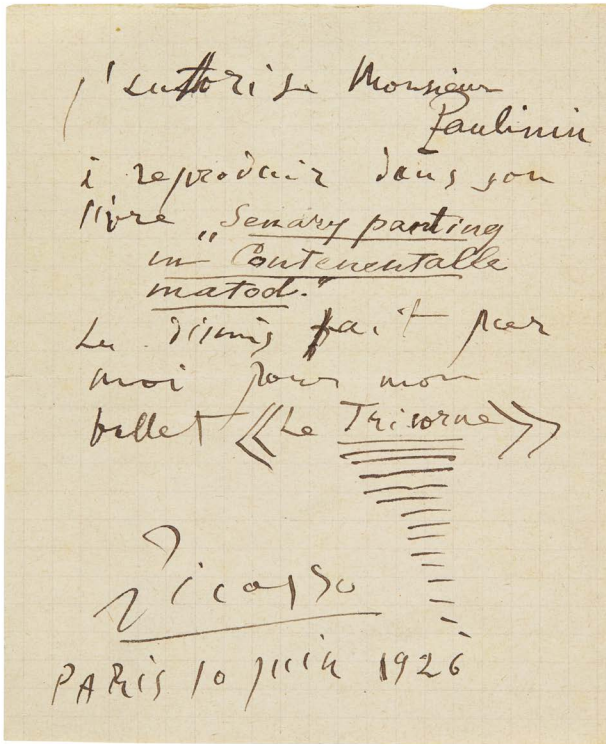 j'autorise Monsieur
Paulinin
à reproduir dans son
livre „Senary panting
in Contenentalle
matod."
Les dessins fait par
moi pour mon
ballet «Le Tricorne»
Picasso
PARIS 10 juin 1926